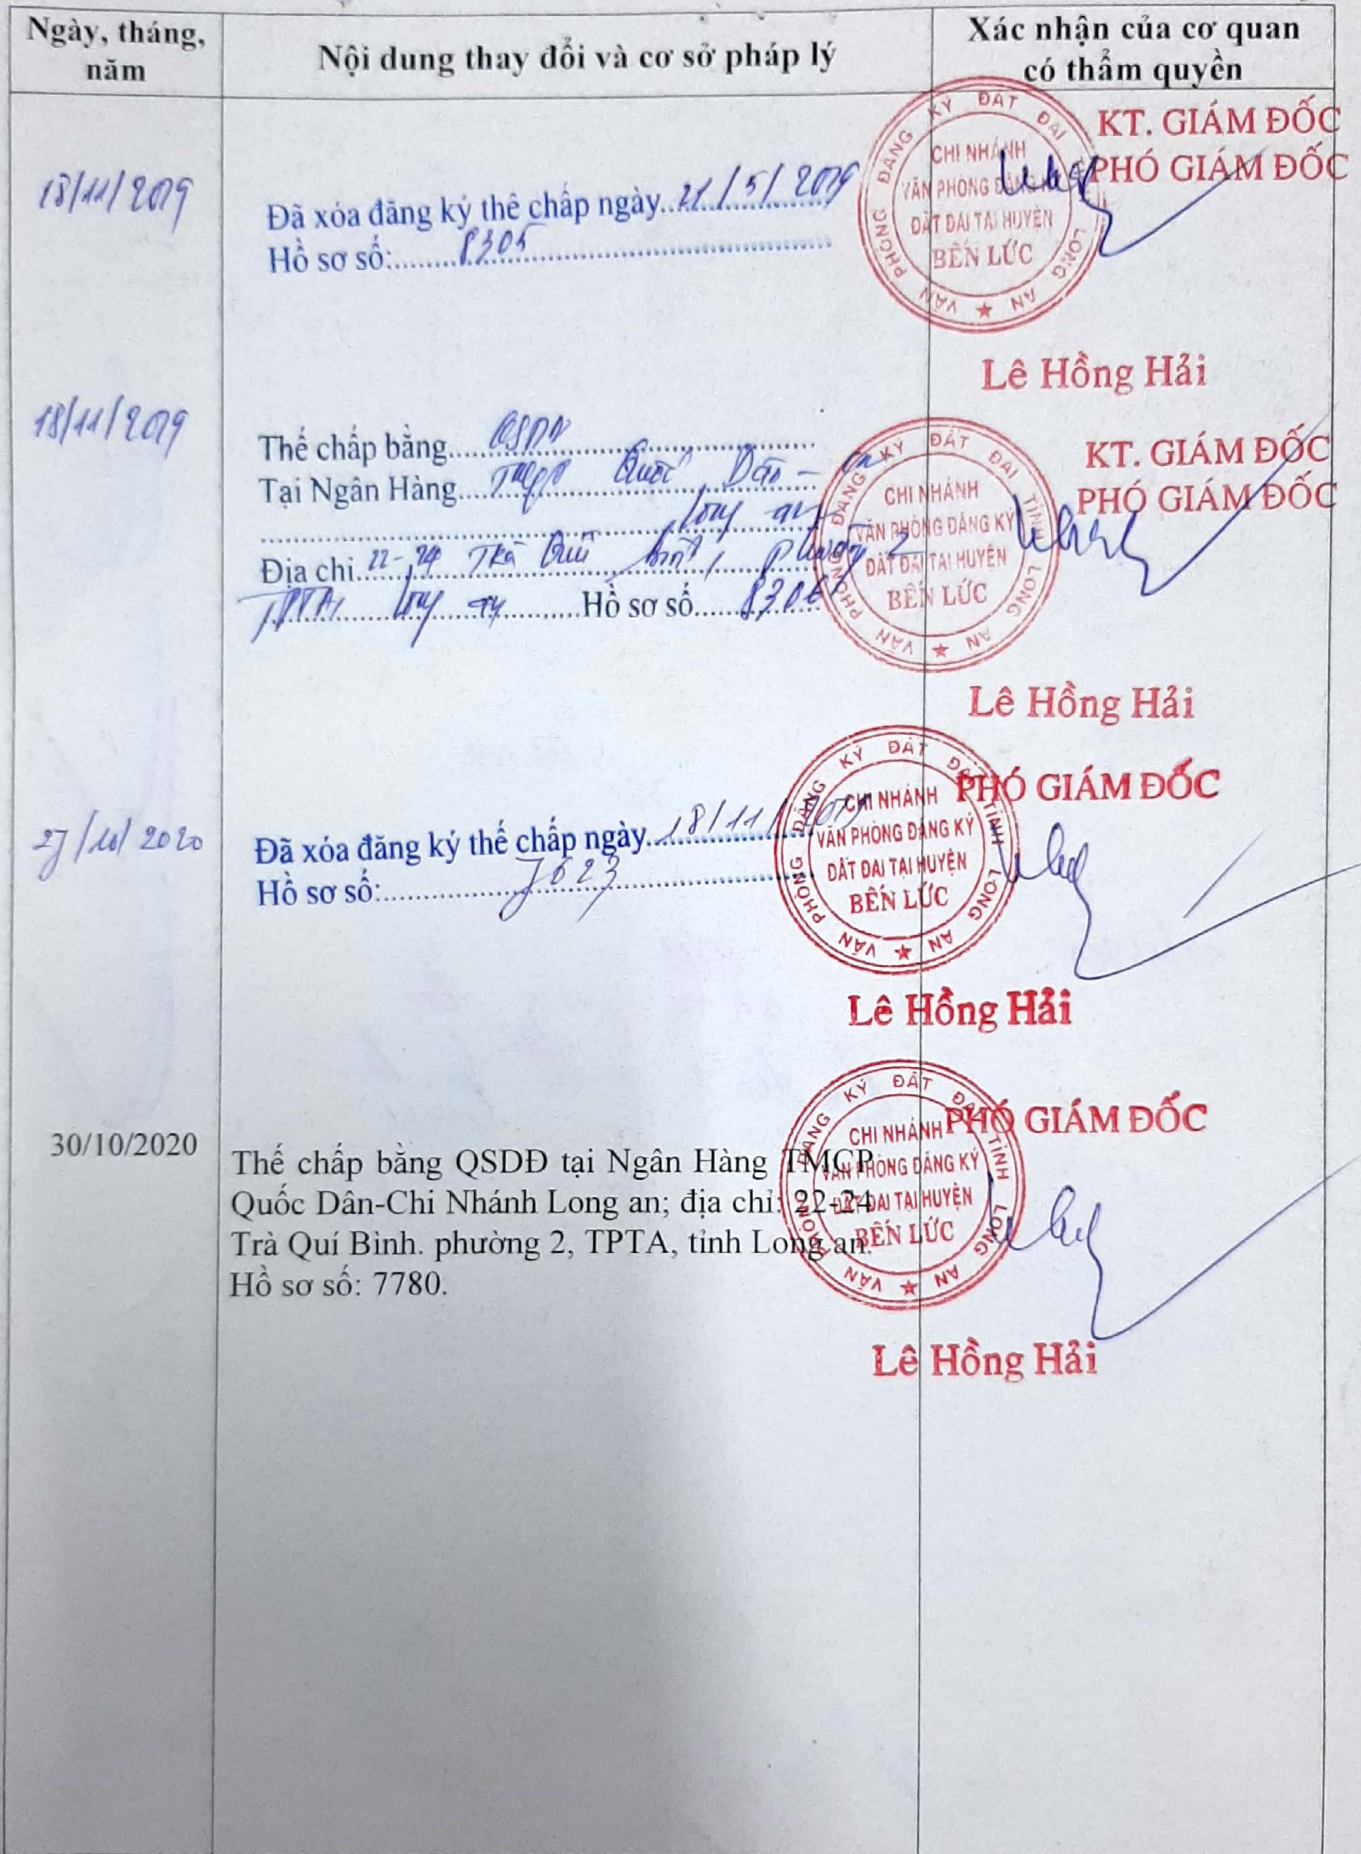 Ngày, tháng,
năm
Nội dung thay đổi và cơ sở pháp lý
Xác nhận của cơ quan
có thẩm quyền
18/11/2019
Đã xóa đăng ký thế chấp ngày..21/5/2019
Hồ sơ số:........8305
VĂN PHÒNG ĐĂNG KÝ ĐẤT ĐAI TỈNH LONG AN
CHI NHÁNH
VĂN PHÒNG ĐĂNG KÝ
ĐẤT ĐAI TẠI HUYỆN
BẾN LỨC
KT. GIÁM ĐỐC
PHÓ GIÁM ĐỐC
Lê Hồng Hải
18/11/2019
Thế chấp bằng.....QSDĐ
Tại Ngân Hàng....TMCP Quốc Dân - CN
Long an
Địa chỉ..22-24 Trà Quí Bình, phường 2
TPTA, Long an..........Hồ sơ số.....8306
VĂN PHÒNG ĐĂNG KÝ ĐẤT ĐAI TỈNH LONG AN
CHI NHÁNH
VĂN PHÒNG ĐĂNG KÝ
ĐẤT ĐAI TẠI HUYỆN
BẾN LỨC
KT. GIÁM ĐỐC
PHÓ GIÁM ĐỐC
Lê Hồng Hải
27/10/2020
Đã xóa đăng ký thế chấp ngày..18/11/2019
Hồ sơ số:..............7623
VĂN PHÒNG ĐĂNG KÝ ĐẤT ĐAI TỈNH LONG AN
CHI NHÁNH
VĂN PHÒNG ĐĂNG KÝ
ĐẤT ĐAI TẠI HUYỆN
BẾN LỨC
PHÓ GIÁM ĐỐC
Lê Hồng Hải
30/10/2020
Thế chấp bằng QSDĐ tại Ngân Hàng TMCP
Quốc Dân-Chi Nhánh Long an; địa chỉ: 22-24
Trà Quí Bình. phường 2, TPTA, tỉnh Long an.
Hồ sơ số: 7780.
VĂN PHÒNG ĐĂNG KÝ ĐẤT ĐAI TỈNH LONG AN
CHI NHÁNH
VĂN PHÒNG ĐĂNG KÝ
ĐẤT ĐAI TẠI HUYỆN
BẾN LỨC
PHÓ GIÁM ĐỐC
Lê Hồng Hải